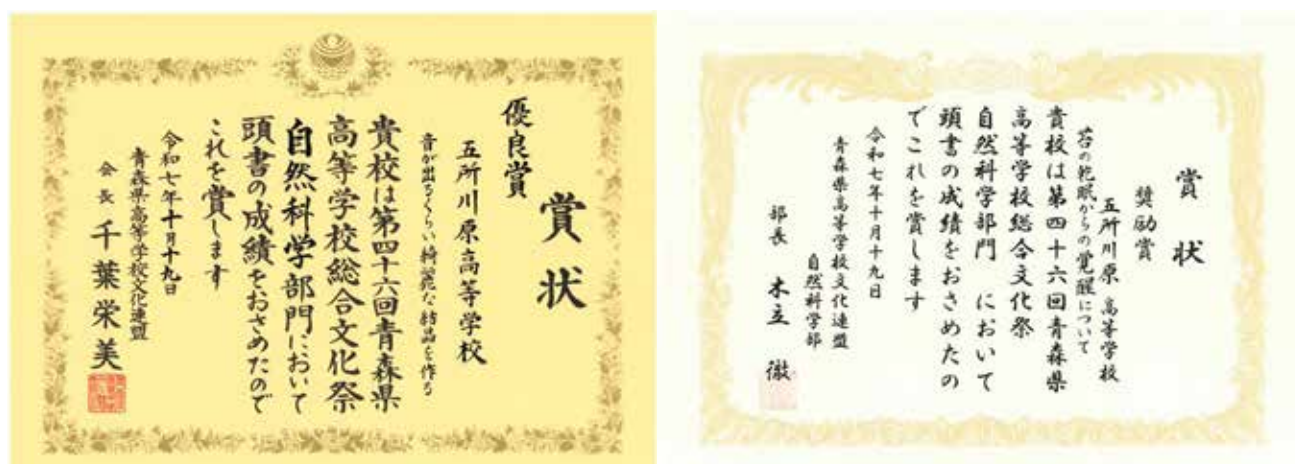 賞状
優良賞
五所川原高等学校
音が出るくらい綺麗な結晶を作る
貴校は第四十六回青森県
高等学校総合文化祭
自然科学部門において
頭書の成績をおさめたので
これを賞します
令和七年十月十九日
青森県高等学校文化連盟
会長 千葉栄美
賞状
奨励賞
五所川原 高等学校
苔の乾眠からの覚醒について
貴校は第四十六回青森県
高等学校総合文化祭
自然科学部門 において
頭書の成績をおさめたの
でこれを賞します
令和七年十月十九日
青森県高等学校文化連盟
自然科学部
部長 木立 徹